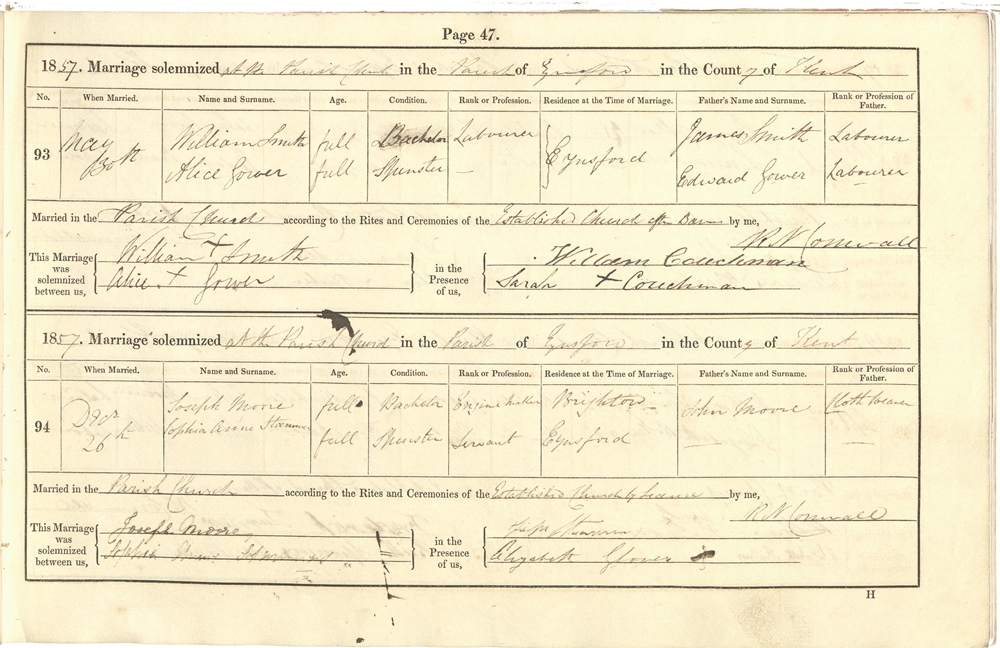 Page 47.
1857. Marriage solemnized at the Parish Church in the Parish of Eynsford in the County of Kent
No. When Married. Name and Surname. Age. Condition. Rank or Profession. Residence at the Time of Marriage. Father's Name and Surname. Rank or Profession of Father.
93 May 30th William Smith full Bachelor Labourer Eynsford James Smith Labourer
Alice Gower full Spinster — Edward Gower Labourer
Married in the Parish Church according to the Rites and Ceremonies of the Established Church after Banns by me,
R N Cornwall
This Marriage was solemnized between us,
William + Smith
Alice + Gower
in the Presence of us,
William Couchman
Sarah + Couchman
1857. Marriage solemnized at the Parish Church in the Parish of Eynsford in the County of Kent
No. When Married. Name and Surname. Age. Condition. Rank or Profession. Residence at the Time of Marriage. Father's Name and Surname. Rank or Profession of Father.
94 Decr 26th Joseph Moore full Bachelor Engine maker Brighton John Moore Cloth weaver
Sophia Anne full Spinster Servant Eynsford — —
Married in the Parish Church according to the Rites and Ceremonies of the Established Church by Licence by me,
R N Cornwall
This Marriage was solemnized between us,
Joseph Moore
Sophia Anne
in the Presence of us,
Elizabeth Glover
H